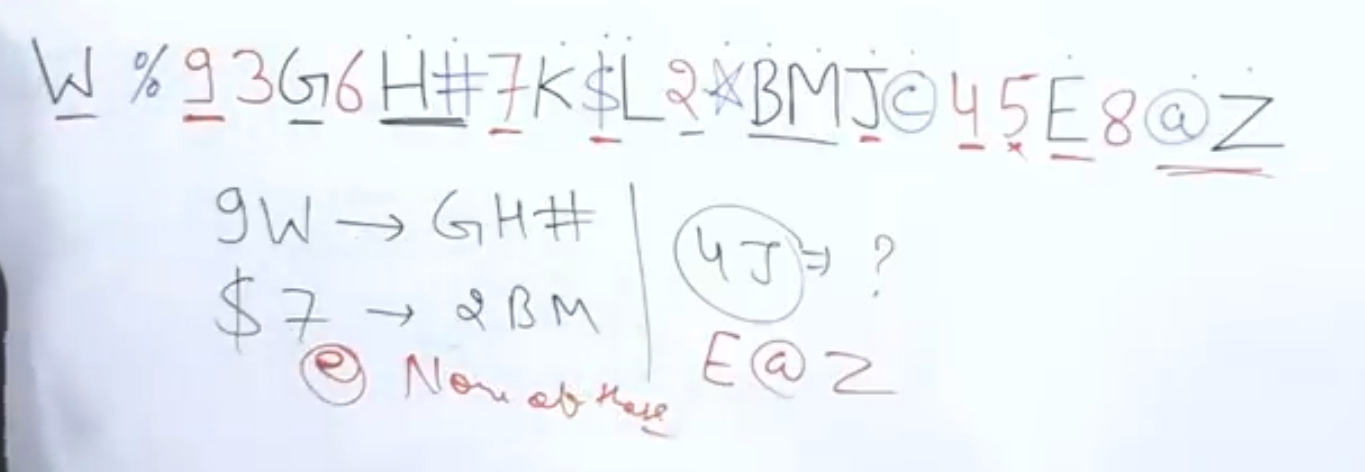 W % 9 3 G 6 H # 7 K $ L 2 * B M J © 4 5 E 8 @ Z
9W → GH#
$7 → 2BM
ⓔ None of these
4J ⇒ ?
E@Z